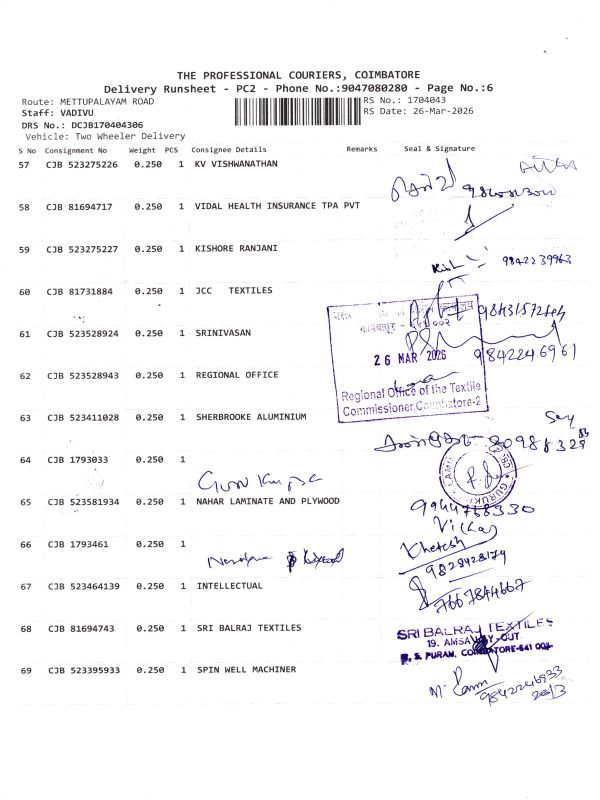 THE PROFESSIONAL COURIERS, COIMBATORE
Delivery Runsheet - PC2 - Phone No.:9047080280 - Page No.:6
Route: METTUPALAYAM ROAD RS No.: 1704043
Staff: VADIVU RS Date: 26-Mar-2026
DRS No.: DCJB170404306
Vehicle: Two Wheeler Delivery
S No Consignment No Weight PCS Consignee Details Remarks Seal & Signature
57 CJB 523275226 0.250 1 KV VISHWANATHAN
58 CJB 81694717 0.250 1 VIDAL HEALTH INSURANCE TPA PVT
59 CJB 523275227 0.250 1 KISHORE RANJANI
9842239963
60 CJB 81731884 0.250 1 JCC TEXTILES
कोयम्बतूर - 641 002
61 CJB 523528924 0.250 1 SRINIVASAN
26 MAR 2026 9842246961
62 CJB 523528943 0.250 1 REGIONAL OFFICE
Regional Office of the Textile
Commissioner, Coimbatore-2
63 CJB 523411028 0.250 1 SHERBROOKE ALUMINIUM
64 CJB 1793033 0.250 1
65 CJB 523581934 0.250 1 NAHAR LAMINATE AND PLYWOOD
9944768330
Vikas
66 CJB 1793461 0.250 1
Khetesh
9828428174
67 CJB 523464139 0.250 1 INTELLECTUAL
7667844667
68 CJB 81694743 0.250 1 SRI BALRAJ TEXTILES
SRI BALRAJ TEXTILES
19, AMSA LAY-OUT
R. S. PURAM, COIMBATORE-641 002
69 CJB 523395933 0.250 1 SPIN WELL MACHINER
9842246933
26/3